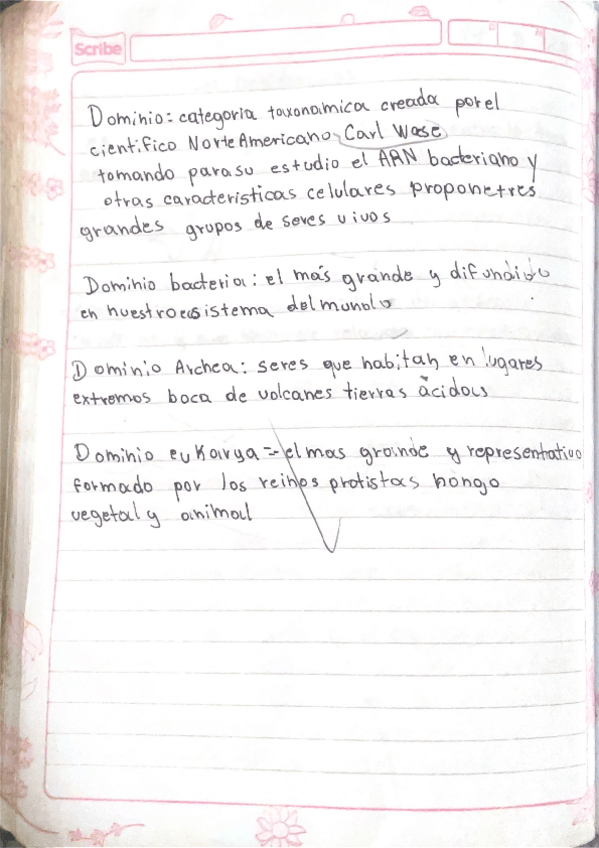 Scribe
Dominio: categoria taxonomica creada por el
cientifico NorteAmericano Carl Wose
tomando para su estudio el ARN bacteriano y
otras caracteristicas celulares propone tres
grandes grupos de seres vivos
Dominio bacteria: el más grande y difundido
en nuestro ecosistema del mundo
Dominio Archea: seres que habitan en lugares
extremos boca de volcanes tierras ácidas
Dominio euKarya = el mas grande y representativo
formado por los reinos protistas hongo
vegetal y animal